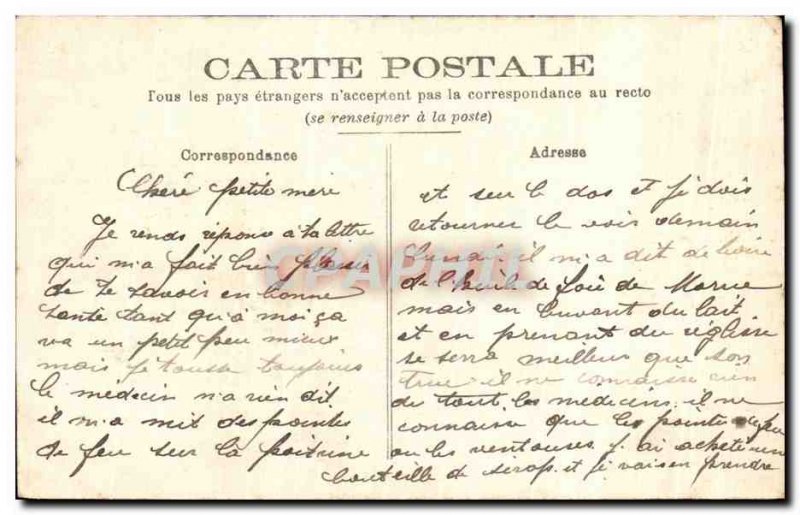 CARTE POSTALE
Tous les pays étrangers n'acceptent pas la correspondance au recto
(se renseigner à la poste)
Correspondance
Chéré petite mère
Je rends répons à ta lettre
qui m'a fait bien plaisir
de te savoir en bonne
santé tant qu'à moi ça
va un petit peu mieux
mais je tousse toujours
le medecin n'a rien dit
il m'a mit des pointes
de feu sur la poitrine
Adresse
et sur le dos et je dois
retourner le voir demain
lundi il m'a dit de boire
de l'huile de foie de Morue
mais en buvant du lait
et en prenant du réglisse
se serra meilleur que son
truc il ne connaisse rien
de tout les medecins il ne
connaisse que les pointes de feu
ou les ventouses j'ai acheté un
bouteille de sirop et je vais en prendre
CPARAMA